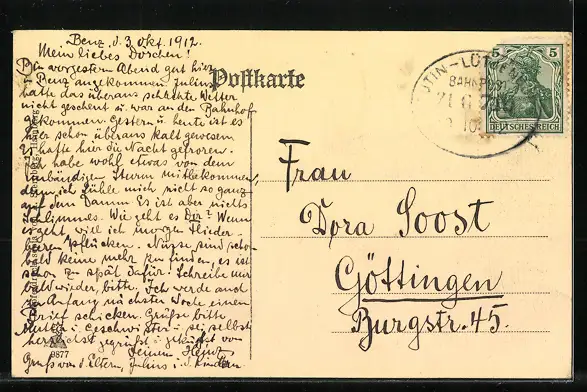 Benz, d. 3 Okt. 1912.
Mein liebes Dorchen!
Bin vorgestern Abend gut hier
in Benz angekommen. Julius
hatte das überaus schlechte Wetter
nicht gescheut u. war an den Bahnhof
gekommen. Gestern u. heute ist es
hier schon überaus kalt gewesen
Es hatte hier die Nacht gefroren.
Ich habe wohl etwas von dem
unbändigen Sturm mitbekommen,
denn ich fühle mich nicht so ganz
auf dem Damm. Es ist aber nichts
Schlimmes. Wie geht es Dir? Wenn
es geht, will ich morgen Flieder-
beeren pflücken. Nüsse sind schon
bald keine mehr zu finden, es ist
schon zu spät dafür. Schreibe mir
bald wieder, bitte. Ich werde auch
Anfang nächster Woche einen
Brief schicken. Grüße bitte
Mutter u. Geschwister u. sei selbst
herzlichst gegrüßt u. geküßt von
Deinem
Gruß von d. Eltern, Julius u. d. Kindern
9877
Postkarte
EUTIN-LÜ
BAHNPOST
DEUTSCHES REICH
5 5
Frau
Dora Soost
Göttingen
Burgstr. 45.